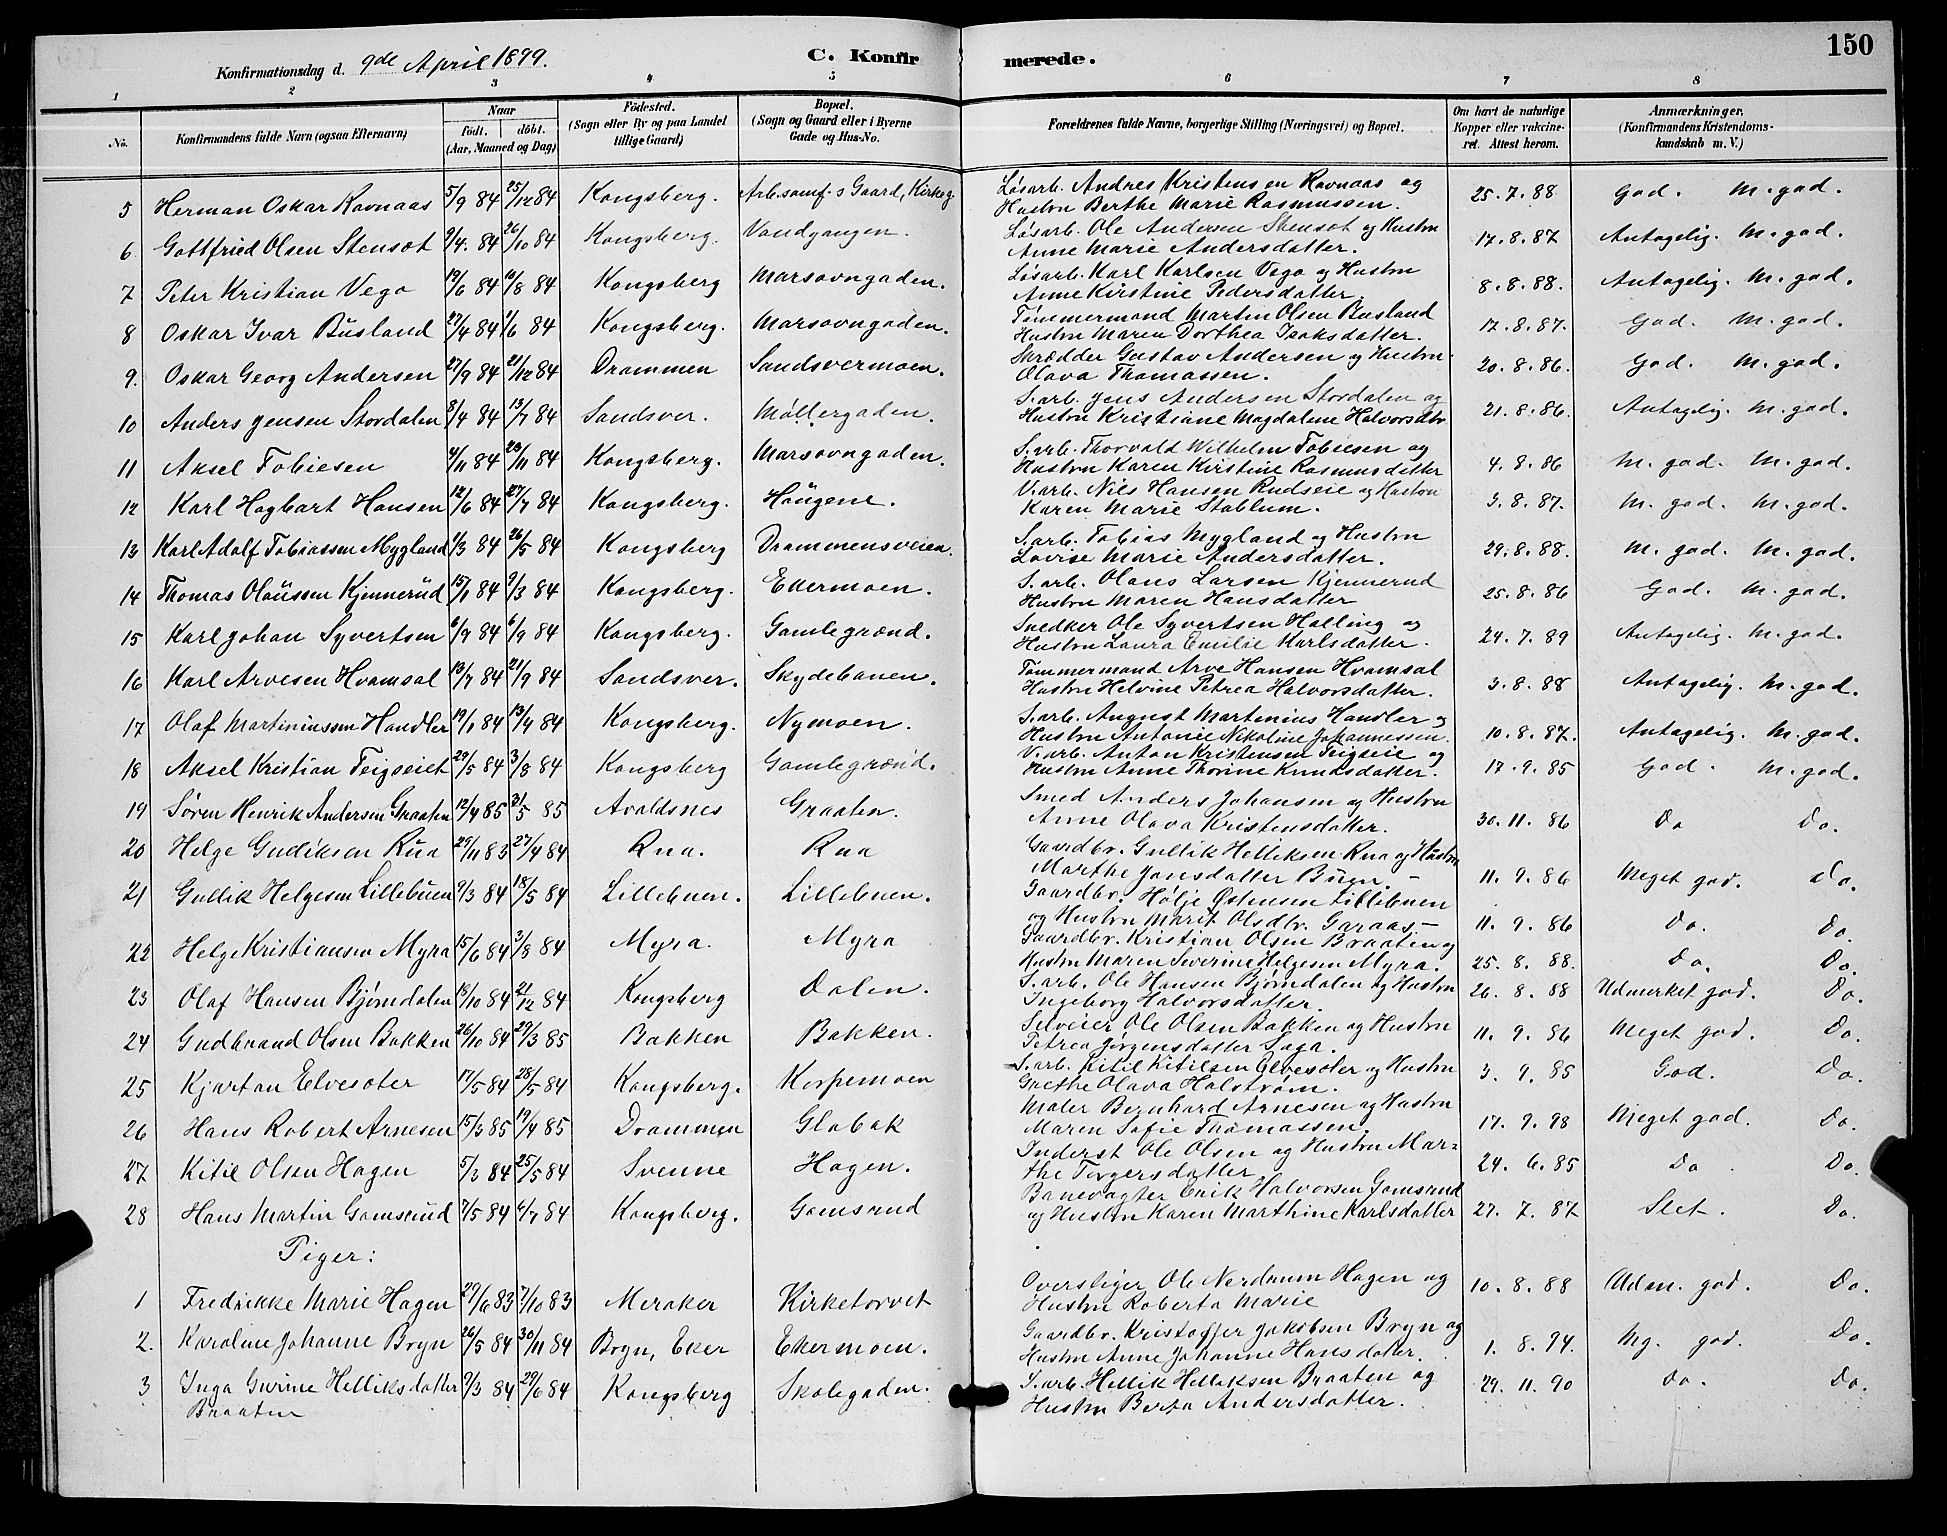 150
Konfirmationsdag d. 9de April 1899. C. Konfirmerede.
1 2 3 4 5 6 7 8
No. Konfirmandens fulde Navn (ogsaa Efternavn) Naar født. døbt. (Aar, Maaned og Dag) Fødested. (Sogn eller By og paa Landet tillige Gaard) Bopæl. (Sogn og Gaard eller i Byerne Gade og Hus-No. Forældrenes fulde Navne, borgerlige Stilling (Næringsvei) og Bopæl. Om havt de naturlige Kopper eller vakcineret. Attest herom. Anmærkninger, (Konfirmandens Kristendomskundskab m. V.)
5 Herman Oskar Ravnaas 5/9 84 25/12 84 Kongsberg. Arb.samf.s Gaard, Kirkeg. Løsarb. Andres Kristensen Ravnaas og Hustru Berthe Marie Rasmussen. 25.7.88 God. M. god.
6 Gottfried Olsen Stensøt 9/4. 84 26/10 84 Kongsberg. Vandgangen. Løsarb. Ole Andersen Stensøt og Hustru Anne Marie Andersdatter. 17.8.87 Antagelig. M. god.
7 Peter Kristian Vego 19/6 84 10/8 84 Kongsberg Marsovngaden. Løsarb. Karl Karlsen Vego og Hustru Anne Kirstine Pedersdatter. 8.8.88. Antagelig. M. god.
8 Oskar Ivar Busland 27/4 84 1/6 84 Kongsberg. Marsovngaden. Tømmermand Martin Olsen Busland Hustru Maren Dorthea Isaksdatter. 17.8.87. God. M. god.
9. Oskar Georg Andersen 27/9 84 21/12 84 Drammen Sandsvermoen. Skrædder Gustav Andersen og Hustru Olava Thomassen. 20.8.86. God. M. god.
10 Anders Jensen Stordalen 8/4 84 13/7 84 Sandsver. Møllergaden. S.arb. Jens Andersen Stordalen og Hustru Kristiane Magdalene Halvorsdtr 21.8.86. Antagelig. M. god.
11 Aksel Tobiesen 4/11 84 23/11 84 Kongsberg. Marsovngaden. S.arb. Thorvald Wilhelm Tobiesen og Hustru Karen Kirstine Rasmusdatter 4.8.86 M. god. M. god.
12 Karl Hagbart Hansen 12/6 84 27/7 84 Kongsberg. Haugene. V.arb. Nils Hansen Rudseie og Hustru Karen Marie Stablum. 3.8.87. M. god. M. god.
13 Karl Adolf Tobiassen Mygland 1/3 84 26/5 84 Kongsberg Drammensveien. S.arb. Tobias Mygland og Hustru Lovise Marie Andersdatter. 29.8.88. M. god. M. god.
14 Thomas Olaussen Kjennerud 15/1 84 9/3 84 Kongsberg. Ekermoen. S.arb. Olaus Larsen Kjennerud Hustru Maren Hansdatter 25.8.86 God. M. god.
15 Karl Johan Syvertsen 6/9 84 6/9 84 Kongsberg. Gamlegrænd. Snedker Ole Syvertsen Helling og Hustru Laura Emilie Karlsdatter. 24.7.89 Antagelig. M. god.
16 Karl Arvesen Hvamsal 13/7 84 21/9 84 Sandsver. Skydebanen. Tømmermand Arve Hansen Hvamsal Hustru Helvine Petrea Halvorsdatter. 3.8.88 Antagelig. M. god.
17 Olaf Martiniussen Handler 19/1 84 13/4 84 Kongsberg. Nymoen. S.arb. August Martinius Handler og Hustru Antonie Nikoline Johannessen. 10.8.87. Antagelig. M. god.
18 Aksel Kristian Teigseiet 29/5 84 3/8 84 Kongsberg Gamlegrænd. V.arb. Anton Kristensen Teigseie og Hustru Anne Thorine Knudsdatter. 17.9.85 God. M. god.
19 Søren Henrik Andersen Graaten 12/4 85 31/5 85 Avaldsnes Graaten. Smed Anders Johansen og Hustru Anne Olava Kristensdatter. 30.11.86 Do Do.
20 Helge Gulliksen Rua 29/11 83 27/4 84 Rua. Rua Gaardbr. Gullik Helliksen Rua og Hustru Marthe Jonsdatter Buen. - 11.9.86 Meget god. Do.
21 Gullik Helgesen Lillebuen 9/3 84 18/5 84 Lillebuen. Lillebuen. Gaardbr. Hølje Østensen Lillebuen og Hustru Marit Olsdtr. Garaas. - 11.9.86 Do. Do.
22 Helge Kristiansen Myra 15/6 84 3/8 84 Myra. Myra Gaardbr. Kristian Olsen Braaten og Hustru Maren Severine Helgesen Myra. 25.8.88. Do. Do.
23 Olaf Hansen Bjørndalen 18/10 84 21/12 84 Kongsberg Dalen. S.arb. Ole Hansen Bjørndalen og Hustru Ingeborg Halvorsdatter. 26.8.88 Udmerket god. Do.
24 Gudbrand Olsen Bakken 26/10 84 29/3 85 Bakken Bakken. Selveier Ole Olsen Bakken og Hustru Petrea Jørgensdatter Saga. 11.9.86 Meget god. Do.
25 Kjartan Elvesøter 17/5 84 28/5 84 Kongsberg. Korpemoen S.arb. Kitil Kitilsen Elvesøter og Hustru Grethe Olava Holstrøm. 3.9.85 God. Do.
26 Hans Robert Arnesen 15/3 85 19/4 85 Drammen Glabak Maler Bernhard Arnesen og Hustru Maren Sofie Thomassen. 17.9.98 Meget god. Do.
27 Kitil Olsen Hagen 5/3 84 25/5 84 Svenne Hagen. Inderst Ole Olsen og Hustru Marthe Torgersdatter 24.6.85 Do Do.
28 Hans Martin Gomsrud 7/5 84 6/7 84 Kongsberg. Gomsrud Banevagter Erik Halvorsen Gomsrud og Hustru Karen Marthine Karlsdatter 27.7.87 Slet. Do.
Piger:
1 Fredrikke Marie Hagen 29/6 83 7/10 83 Meraker Kirketorvet Overstiger Ole Nordaum Hagen og Hustru Roberta Marie 10.8.88 Udm. god. Do.
2. Karoline Johanne Bryn 26/5 84 30/11 84 Bryn, Eker Ekermoen. Gaardbr. Kristoffer Jakobsen Bryn og Hustru Anne Johanne Hansdatter. 1.8.94. Mg. god. Do.
3 Inga Gurine Helliksdatter Braaten 9/3 84 29/6 84 Kongsberg Skolegaden. S.arb. Hellik Helleksen Braaten og Hustru Berta Andersdatter. 29.11.90 Do. Do.